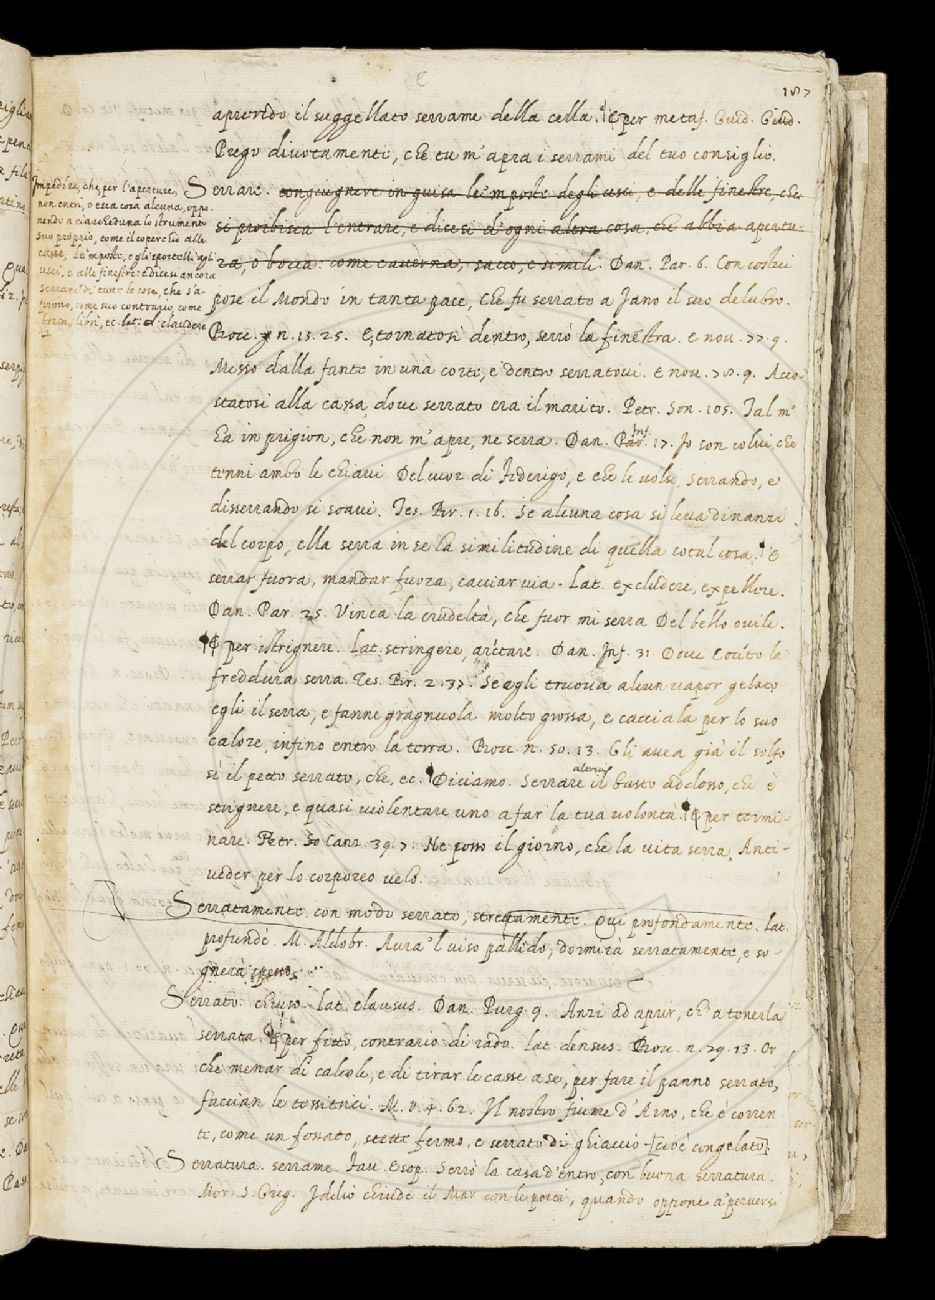 aprendo il suggellato serrame della cella. E per metaf. Guid. Giud.
Prego divotamenti, che tu m'apra i serrami del tuo consiglio.
Impedire, che per l'aperture,
non entri, o esca cosa alcuna, oppo-
nendo a ciascheduna lo strumento
suo proprio, come il coperchio alle
casse, le imposte, e gli sportelli agli
usci, e alle finestre: e dicesi ancora
serrare di tutte le cose, che s'a-
prono, come suo contrario, come
borsa, libri, ec. lat. claudere
Serrare. congiugnere in guisa le 'mposte degli usci, e delle finestre, che
si proibisca l'entrare, e dicesi d'ogni altra cosa, che abbia apertu-
ra, o bocca: come caverna, sacco, e simili. Dan. Par. 6. Con costui
pose il Mondo in tanta pace, Che fu serrato a Jano il suo delubro.
Bocc. n. 15. 25. E, tornatosi dentro, serrò la finestra. e nov. 77. 9.
Messo dalla fante in una corte, e dentro serratovi. e nov. 9. Acco-
statosi alla cassa, dove serrato era il marito. Petr. Son. 105. Tal m'
ha in prigion, che non m'apre, ne serra. Dan. Par. Inf. 17. Jo son colui, che
tenni ambo le chiavi Del cuor di Federigo, e che le volsi, Serrando, e
disserrando si soavi. Tes. Br. 1. 16. Se alcuna cosa si leva dinanzi
del corpo, ella serra in se la similitudine di quella cotal cosa. E
serrar fuora, mandar fuora, cacciar via. Lat. excludere, expellere.
Dan. Par. 25. Vinca la crudeltà, che fuor mi serra Del bello ovile.
E per istrignere. Lat. stringere, arctare. Dan. Inf. 31 Dove Cocito la
freddura serra. Tes. Br. 2. 37. Se egli truova alcun vapor gelato
egli il serra, e fanne gragnuola molto grossa, e cacciala per lo suo
calore, infino entro la terra. Bocc. n. 50. 13. Gli avea già il solfo
si il petto serrato, che, ec. Diciamo. Serrare altrui il basto addosso, che è
strignere, e quasi violentare uno a far la tua volontà. E per termi-
nare. Petr. Canz. 39. 7. Ne posso il giorno, che la vita serra, Anti-
veder per lo corporeo velo.
Serratamente. con modo serrato, strettamente. Qui profondamente. Lat.
profundè. M. Aldobr. Aura 'l viso pallido, dormirà serratamente, e so-
gnerà spesso.
Serrato. chiuso. lat. clausus. Dan. Purg 9. Anzi ad aprir, ch' a tenerla
serrata. E per fitto, contrario di rado. lat. densus. Bocc. n. 29. 13. Or
che menar di calcole, e di tirar le casse a se, per fare il panno serrato,
faccian le tessitrici. M. V. 4. 62. Il nostro fiume d'Arno, che è corren
te, come un fossato, stette fermo, e serrato di ghiaccio [cioè congelato].
Serratura. serrame. Fav. Esop. Serrò la casa d'entro, con buona serratura.
Mor. S. Greg. Idelio chiude il Mar con le porte, quando oppone a' perversi